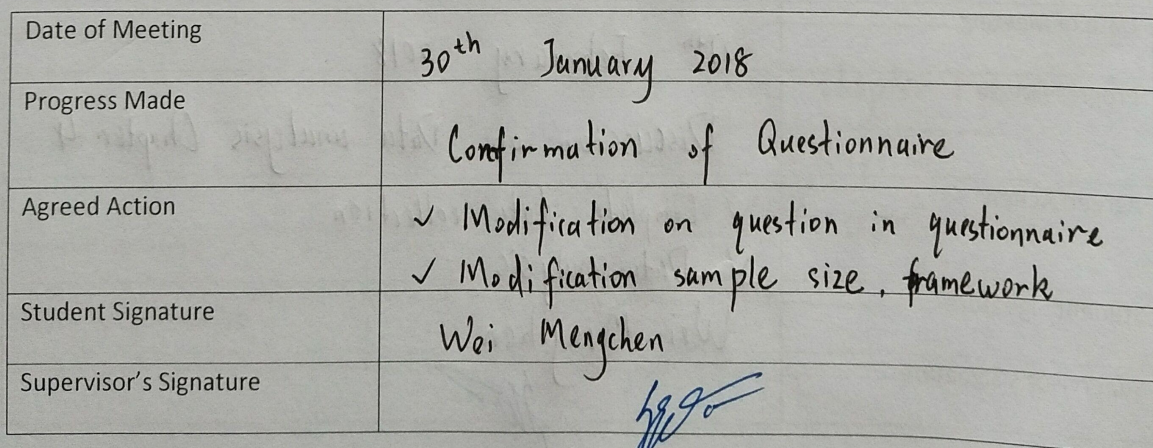 Date of Meeting
30th January 2018
Progress Made
Confirmation of Questionnaire
Agreed Action
✓ Modification on question in questionnaire
✓ Modification sample size, framework
Student Signature
Wei Mengchen
Supervisor's Signature